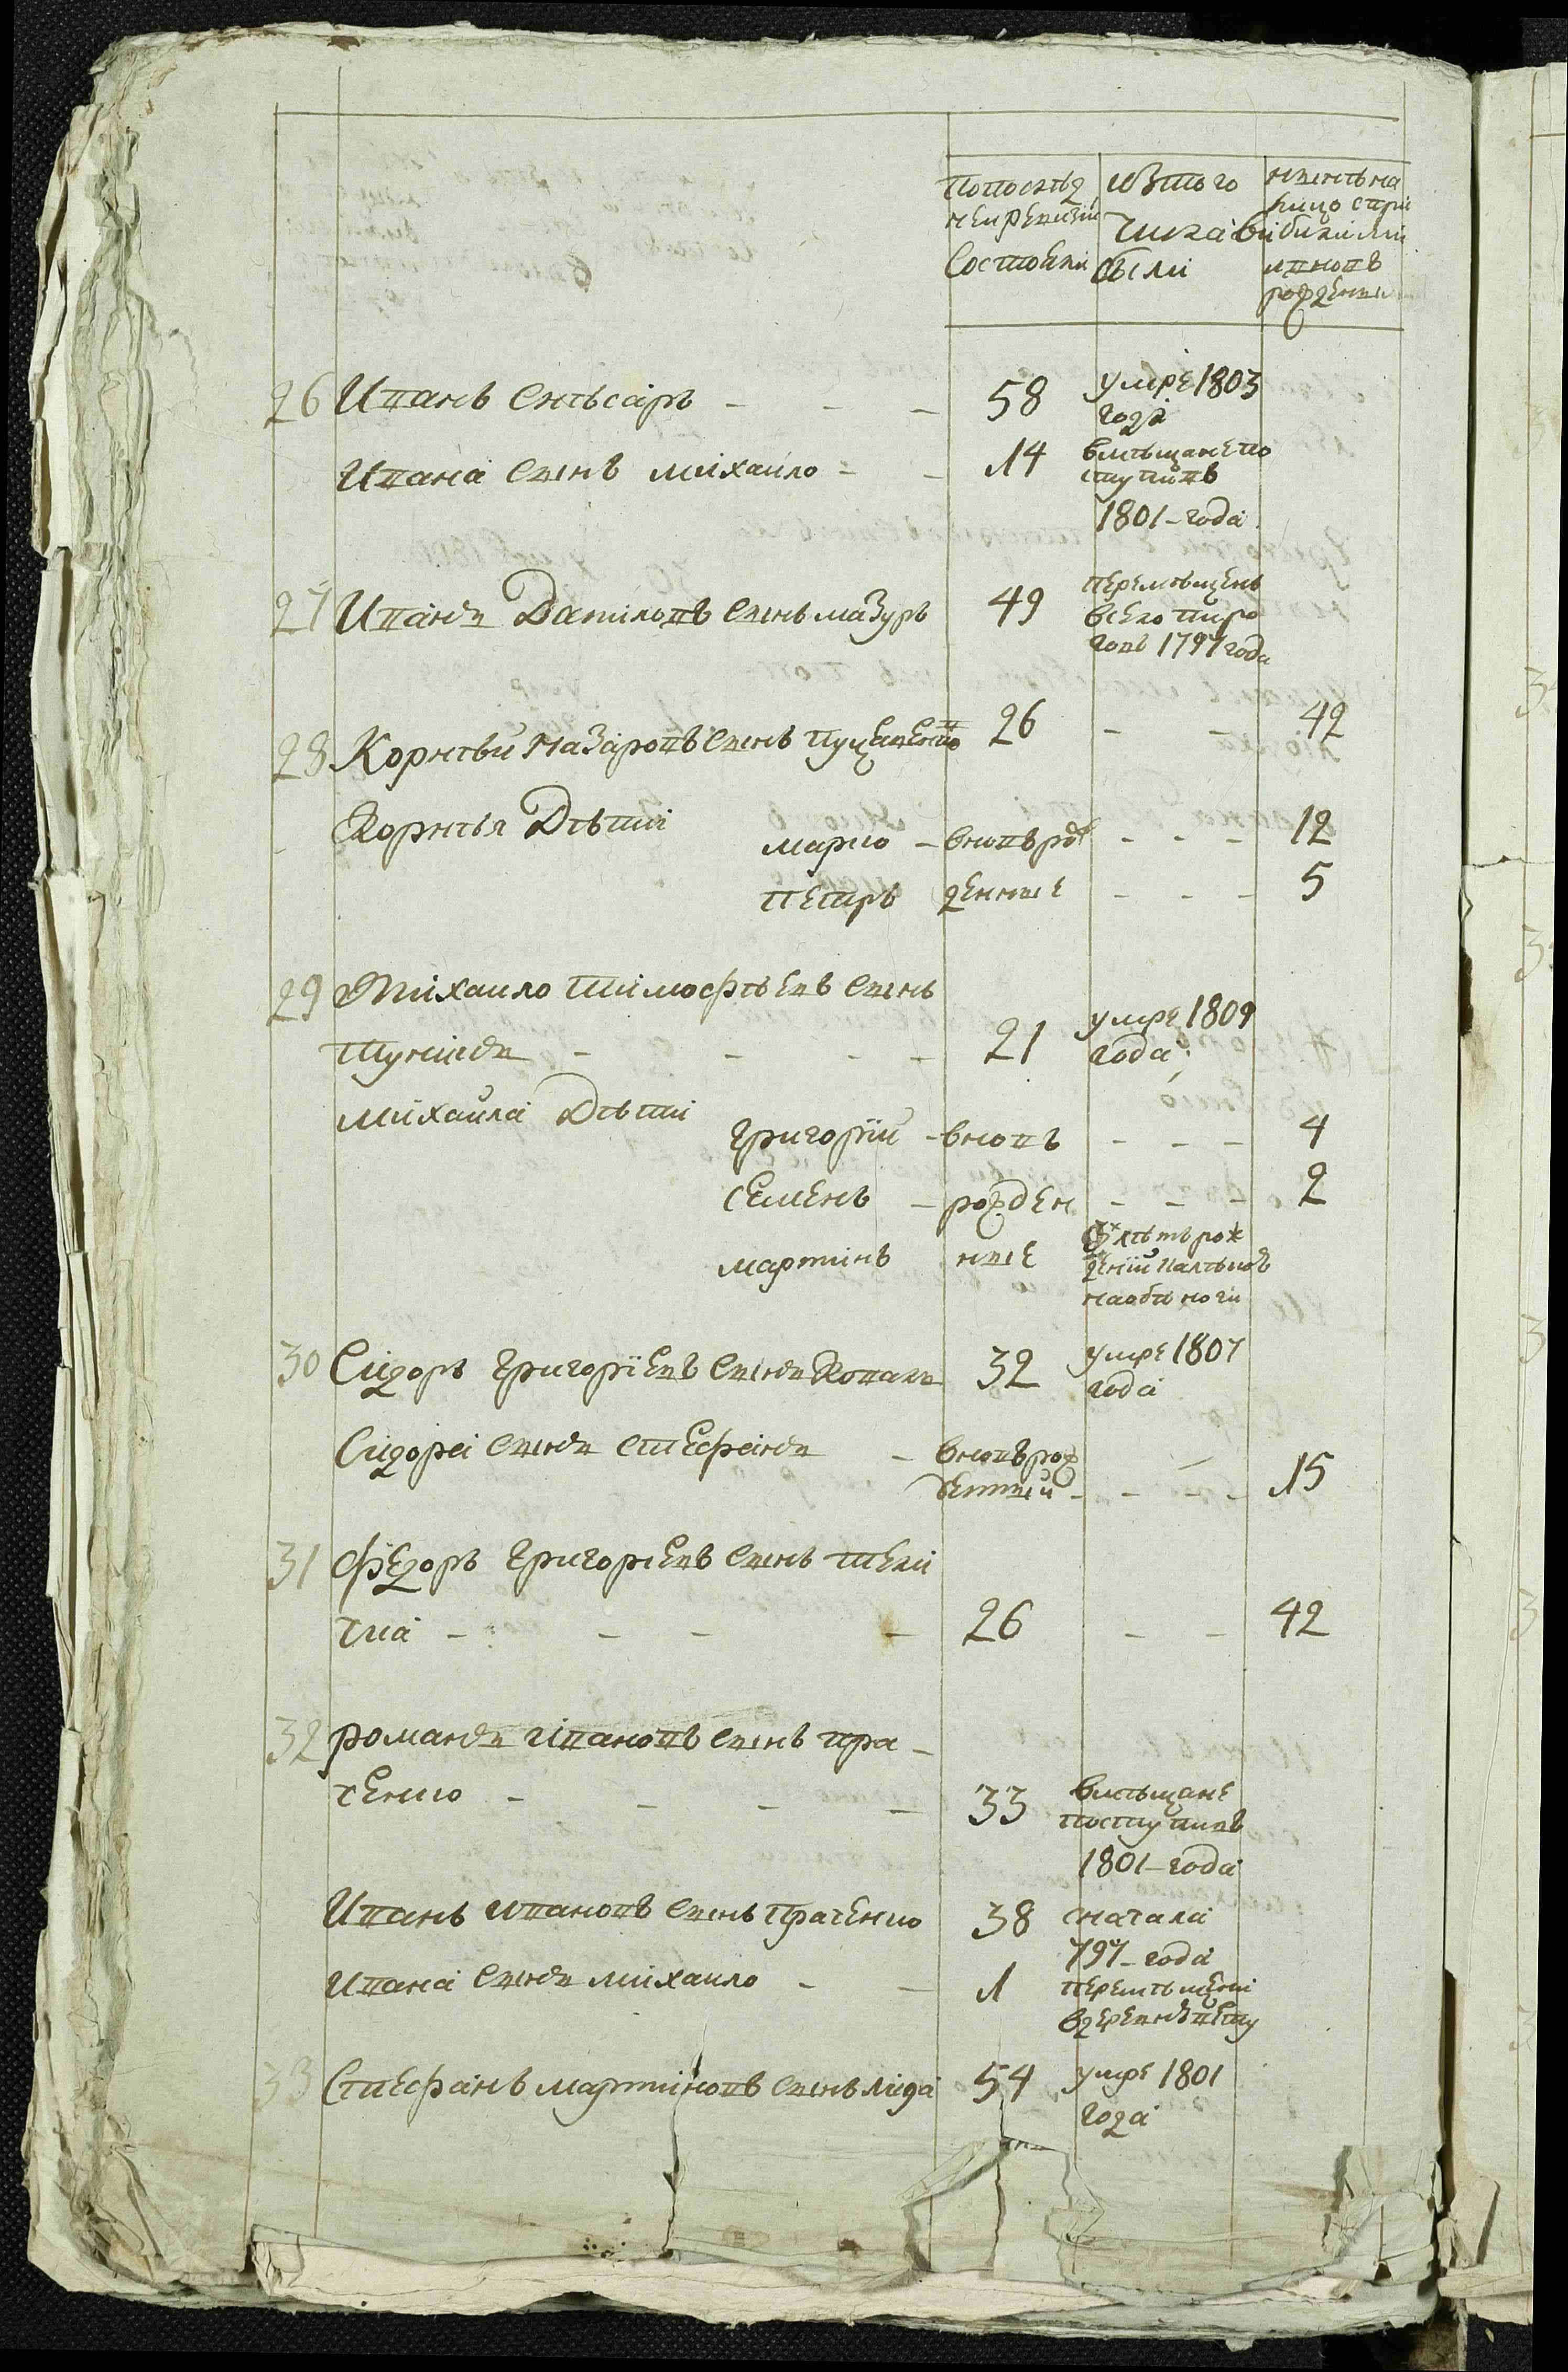 Попослѣд
ней ревизіи
Состояли
изтого
числа вы
были
нынѣ на
лицо с при
былыми
и вновь
рожденны
26 Иванъ Снѣсаръ - - - 58 умре 1803
года
Ивана сынъ михаило - - 14 вмѣщане по
ступивъ
1801-года
27 Иванъ Даниловъ сынъ мазуръ 49 перемѣщенъ
всело пиро
говъ 1797 года
28 Корнѣй Назаровъ сынъ 26 - - 42
Корнѣя Дѣти
марко - вновь рож - - - 12
петръ денные - - - 5
29 Михаило Тимофѣевъ сынъ
- - - - 21 умре 1809
года
михаила Дѣти
григорій - вновь - - - 4
семенъ - рожден - - - 2
мартинъ ные
рож
30 Сидоръ григоріевъ сынъ Коваль 32 умре 1807
года
Сидора сынъ стефанъ - вновь рож
денный - - - - 15
31 Федоръ григоріевъ сынъ тели
чка - - - - 26 - - 42
32 романъ ивановъ сынъ пра-
ченко - - - - 33 вмѣщане
поступивъ
1801-года
Иванъ ивановъ сынъ праченко 38 сначала
797-года
ивана сынъ михаило - - 1 перемѣщени
вдеревнѣ
33 Стефанъ мартиновъ сынъ лида 54 умре 1801
года